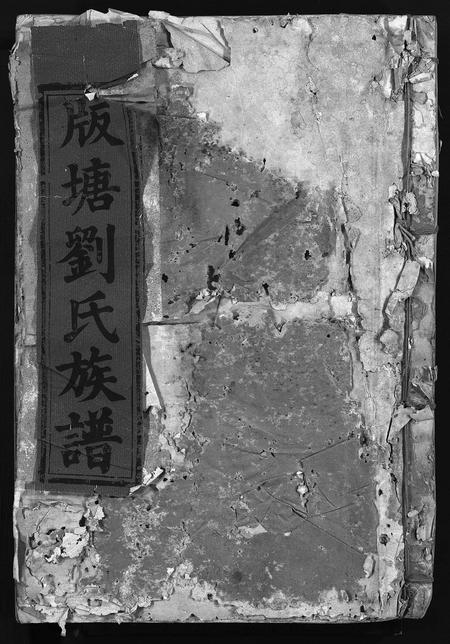 版塘劉氏族譜